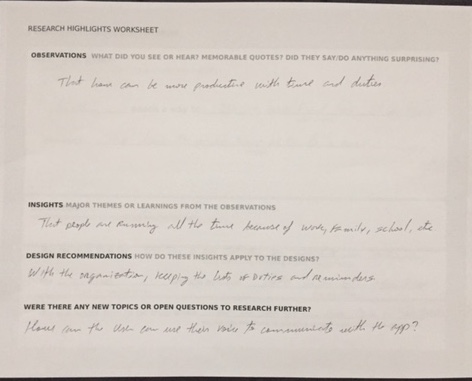 RESEARCH HIGHLIGHTS WORKSHEET
OBSERVATIONS WHAT DID YOU SEE OR HEAR? MEMORABLE QUOTES? DID THEY SAY/DO ANYTHING SURPRISING?
That how can be more productive with time and duties
INSIGHTS MAJOR THEMES OR LEARNINGS FROM THE OBSERVATIONS
That people are running all the time because of work, family, school, etc
DESIGN RECOMMENDATIONS HOW DO THESE INSIGHTS APPLY TO THE DESIGNS?
With the organization, keeping the lists of duties and reminders
WERE THERE ANY NEW TOPICS OR OPEN QUESTIONS TO RESEARCH FURTHER?
can the User can use their voice to communicate with the app?